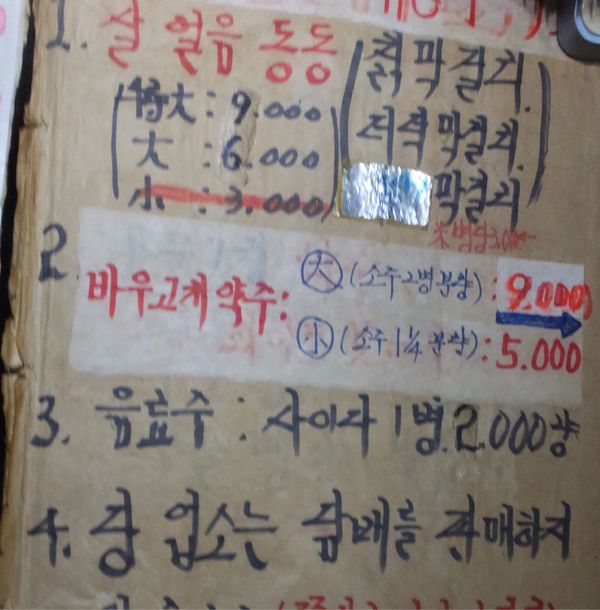 1. 살 얼음 동동
(特大: 9.000
大 : 6.000
小 : 3.000)
(칡 막걸리.
더덕 막걸리.
막걸리)
※ 병당 3.000
2. 바우고개 약주:
大 (소주 2병 분량) : 9.000
小 (소주 1 1/4 분량) : 5.000
3. 음료수 : 사이다 1병 2.000왕
4. 당 업소는 담배를 판매하지